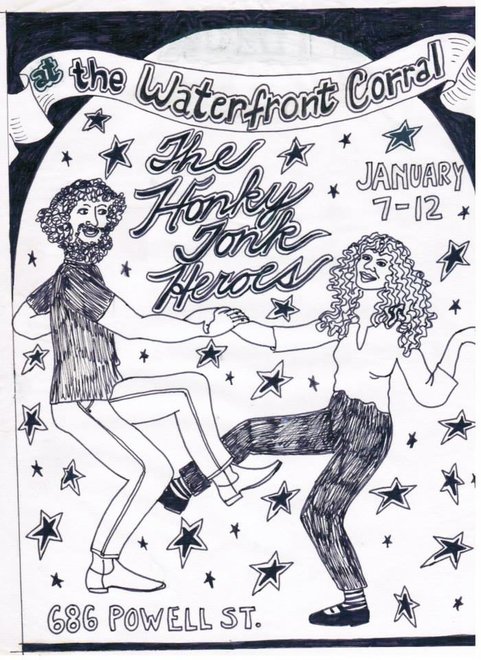 at the Waterfront Corral
The
Honky
Tonk
Heroes
JANUARY
7-12
686 POWELL ST.